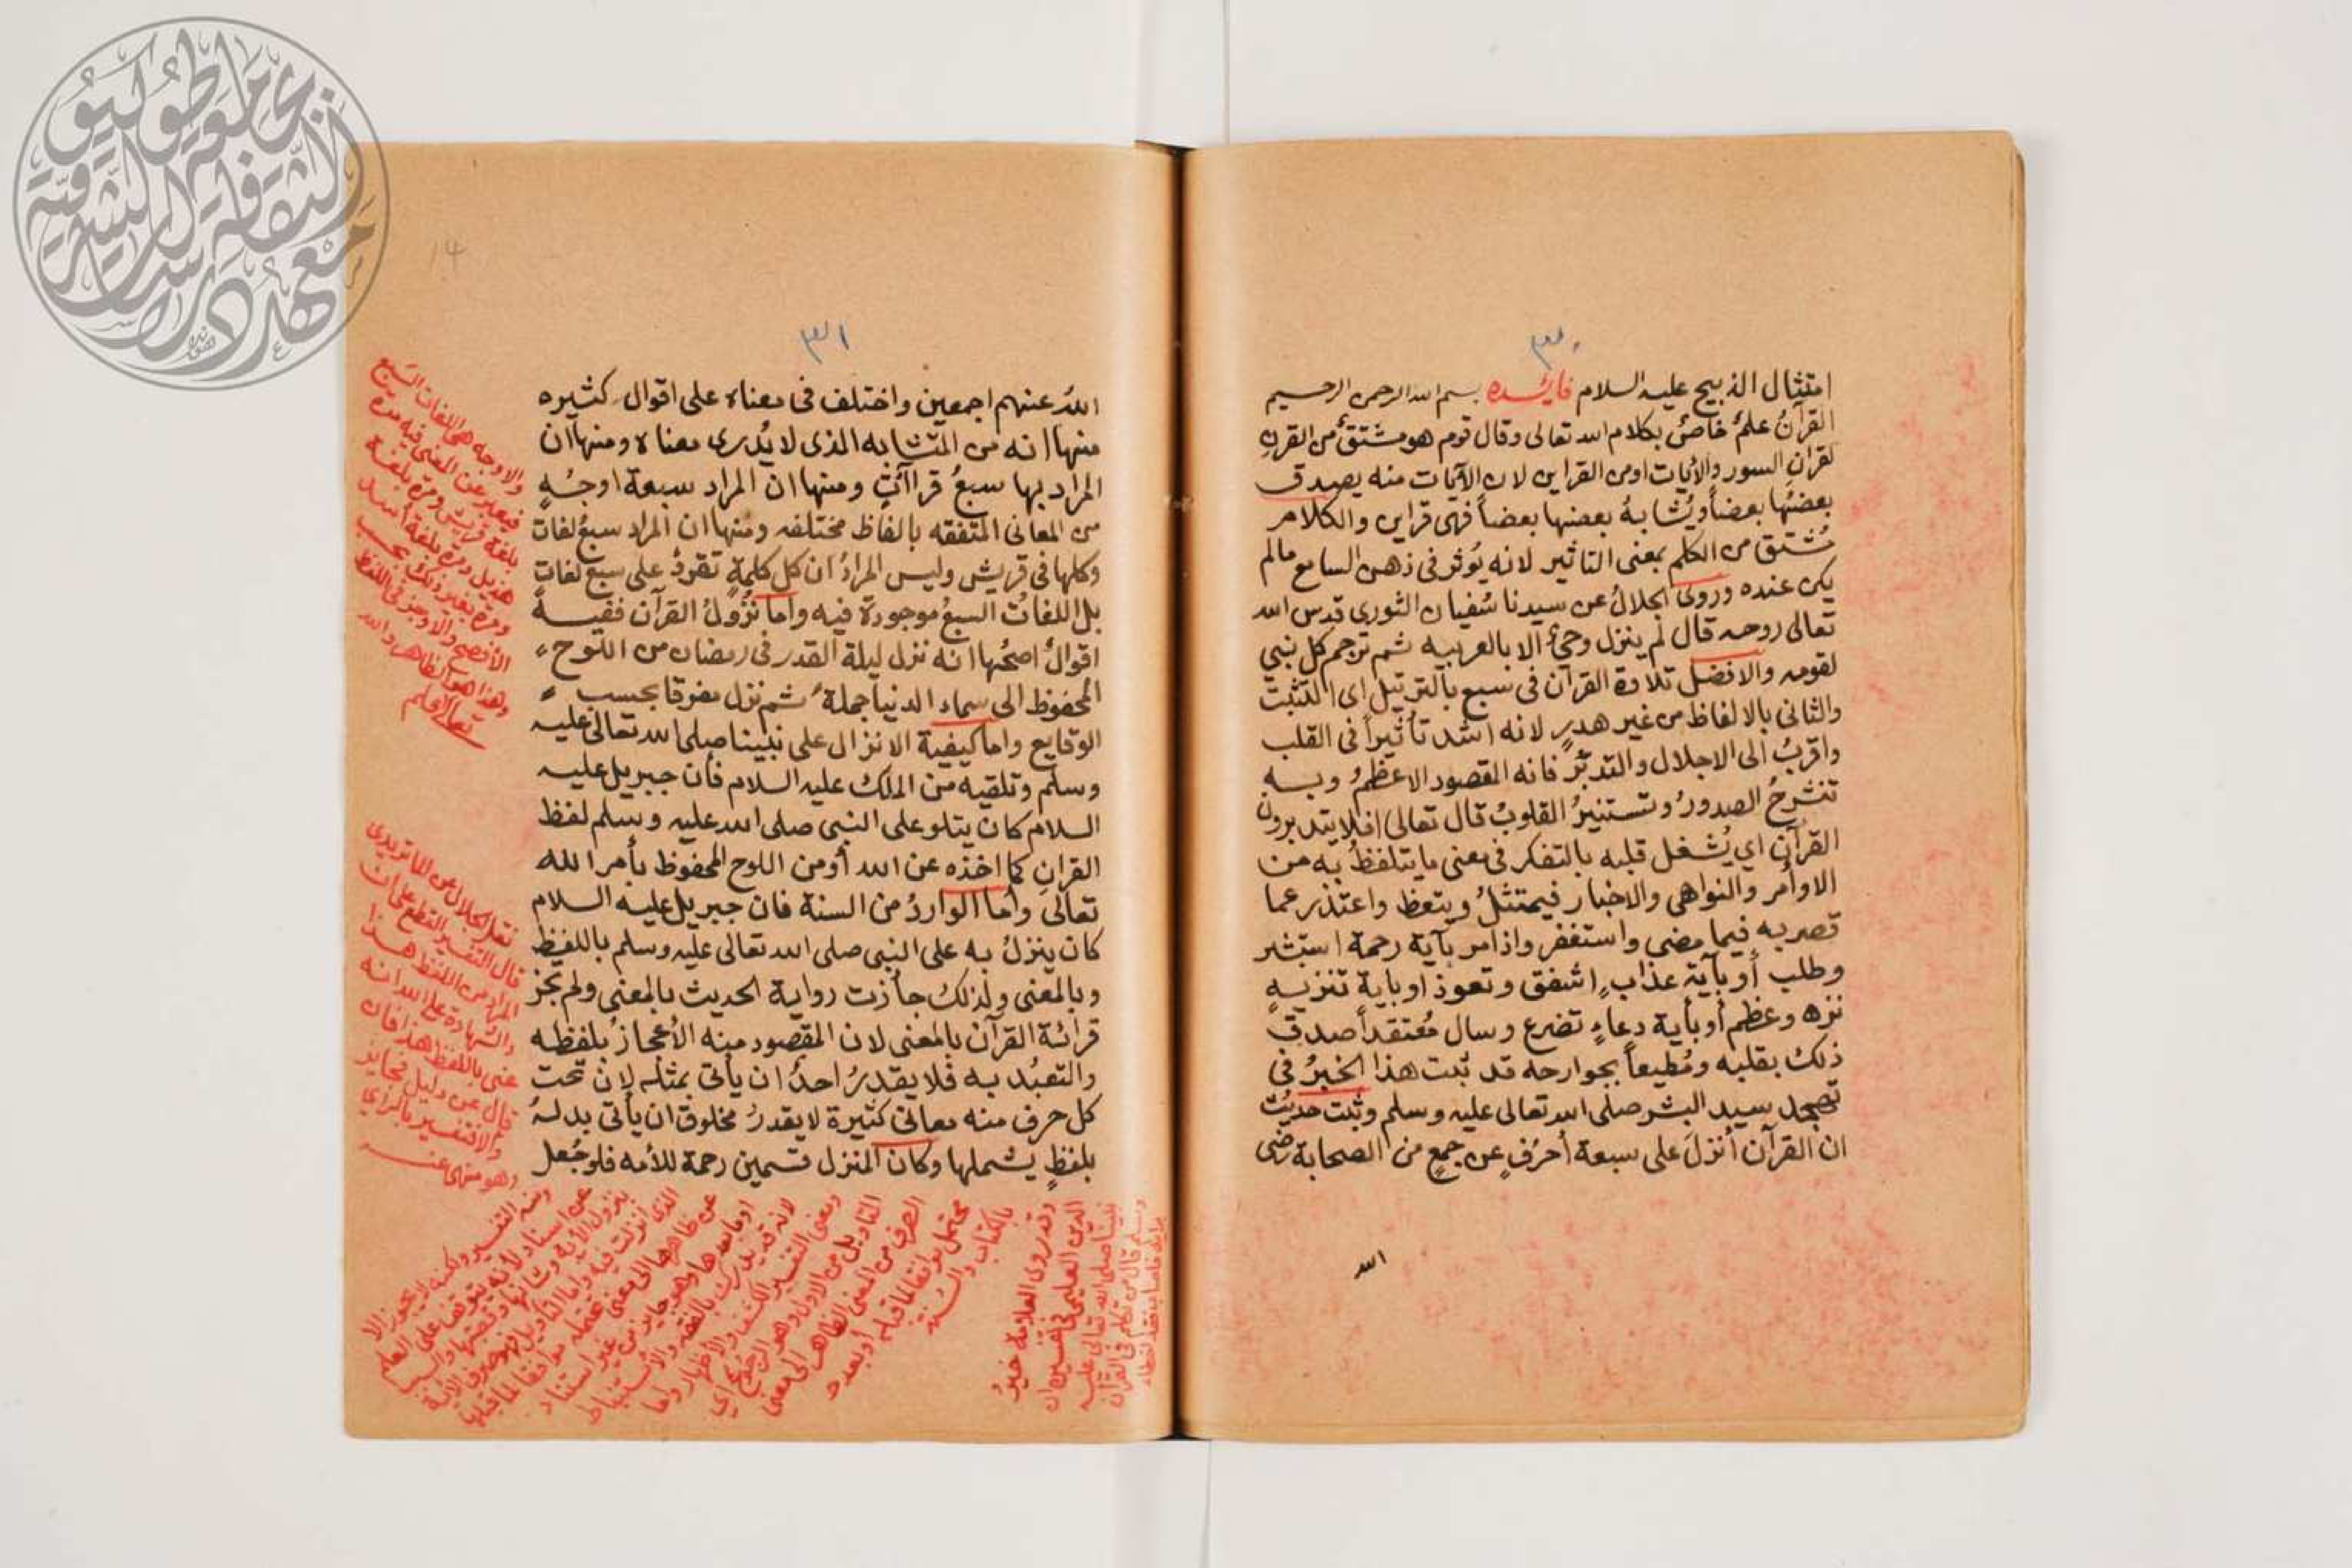 ٣٠
امتثال الذبيح عليه السلام فائده بسم الله الرحمن الرحيم
القرآنُ علمٌ خاصٌ بكلام الله تعالى وقال قوم هو مشتقٌ من القرن
لقرانِ السور والأيات اومن القراين لان الآيات منه يصدق
بعضُها بعضاً ويُشابهُ بعضها بعضاً فهى قراين والكلام
مُشتق من الكلم بمعنى التاثير لانه يُوثر فى ذهن السامع مالم
يكن عنده وروى الجلالُ عن سيدنا سُفيان الثورى قدس الله
تعالى روحه قال لم ينزل وحىٌ الا بالعربيه ثم ترجم كل نبي
لقومه والافضل تلاوة القرآن فى سبع بالترتيل اى التثبت
والثانى بالالفاظ من غير هدرٍ لانه اشد تأثيراً فى القلب
واقربُ الى الاجلال والتدبّر فانه المقصود الاعظمُ وبه
تنشرحُ الصدورُ وتستنيرُ القلوبُ قال تعالى افلا يتدبرون
القرآن اي يُشغل قلبه بالتفكر فى معنى ما يتلفظُ به من
الاوامر والنواهي والاخبار فيمتثلُ ويتعظ واعتذر عما
قصر به فيما مضى واستغفر واذا مر بآية رحمة استبشر
وطلب أو بآية عذابٍ اشفق وتعوذ او باية تنزيهٍ
نزه وعظم أو بأية دعاءٍ تضرع وسال مُعتقداً صدق
ذلك بقلبه ومُطيعاً بجوارحه قد ثبت هذا الخبرُ فى
تهجد سيد البشر صلى الله تعالى عليه وسلم وثبت حديث
ان القرآن أنزلَ على سبعة أحرُفٍ عن جمعٍ من الصحابة رضى
الله
٣١
اللهُ عنهم اجمعين واختلف فى معناه على اقوال كثيره
منها انه من المتشابه الذى لا يُدرى معناه ومنها ان
المراد بها سبعُ قراآتٍ ومنها ان المراد سبعة اوجُهٍ
من المعانى المتفقه بالفاظ مختلفه ومنها ان المراد سبعُ لغات
وكلها فى قريش وليس المرادُ ان كل كلمةٍ تقرؤ على سبع لغات
بل اللغاتُ السبعُ موجودة فيه واما نُزُولُ القرآن ففيه
اقوالٌ اصحُها انه نزل ليلة القدر فى رمضان من اللوح
المحفوظ الى سماء الدنيا جملةً ثم نزل مفرقا بحسب
الوقايع واما كيفية الانزال على نبينا صلى الله تعالى عليه
وسلم وتلقيه من الملك عليه السلام فأن جبريل عليه
السلام كان يتلو على النبي صلى الله عليه وسلم لفظ
القران كما اخذه عن الله أو من اللوح المحفوظ بأمر الله
تعالى وأما الواردُ من السنة فان جبريل عليه السلام
كان ينزلُ به على النبي صلى الله تعالى عليه وسلم باللفظ
وبالمعنى ولذلك جازت رواية الحديث بالمعنى ولم يجز
قرائة القرآن بالمعنى لان المقصود منه الأعجازُ بلفظه
والتعبُد به فلا يقدرُ احدٌ ان يأتى بمثله لان تحت
كل حرف منه معانى كثيرة لا يقدرُ مخلوق ان يأتى بدلهُ
بلفظٍ يشملها وكان المنزل قسمين رحمة للأمه فلو جُعل
والاوجه هى اللغات السبع
فيعبر عن المعنى فيه مرة
بلغة قريش ومرة بلغة
هذيل ومرة بلغة اسد
ومرة بغير ذلك بحسب
الأفصح والاوجز فى اللفظ
وهذا هو الظاهر والله
تعالى اعلم
نقل الجلال عن الماتريدى
قال التفسير القطع على ان
المراد من اللفظ هذا
والشهادة على الله انه
عنى باللفظ هذا فان
قال عن دليل فجايز
والا فتفسير بالراي
وهو منهى عنه
ومعنى التفسير الكشف والأظهار واما
التاويل من الاول وهو الرجوع اي
الصرف من المعنى الظاهر الى معنى
محتمل موافقا لما قبله او بعده
بالكتاب والسنة
وقد روى العلامة خير
الدين العليمى فى تفسيره ان
نبينا صلى الله تعالى عليه
وسلم قال من تكلم فى القرآن
برايه فاصاب فقد اخطاء